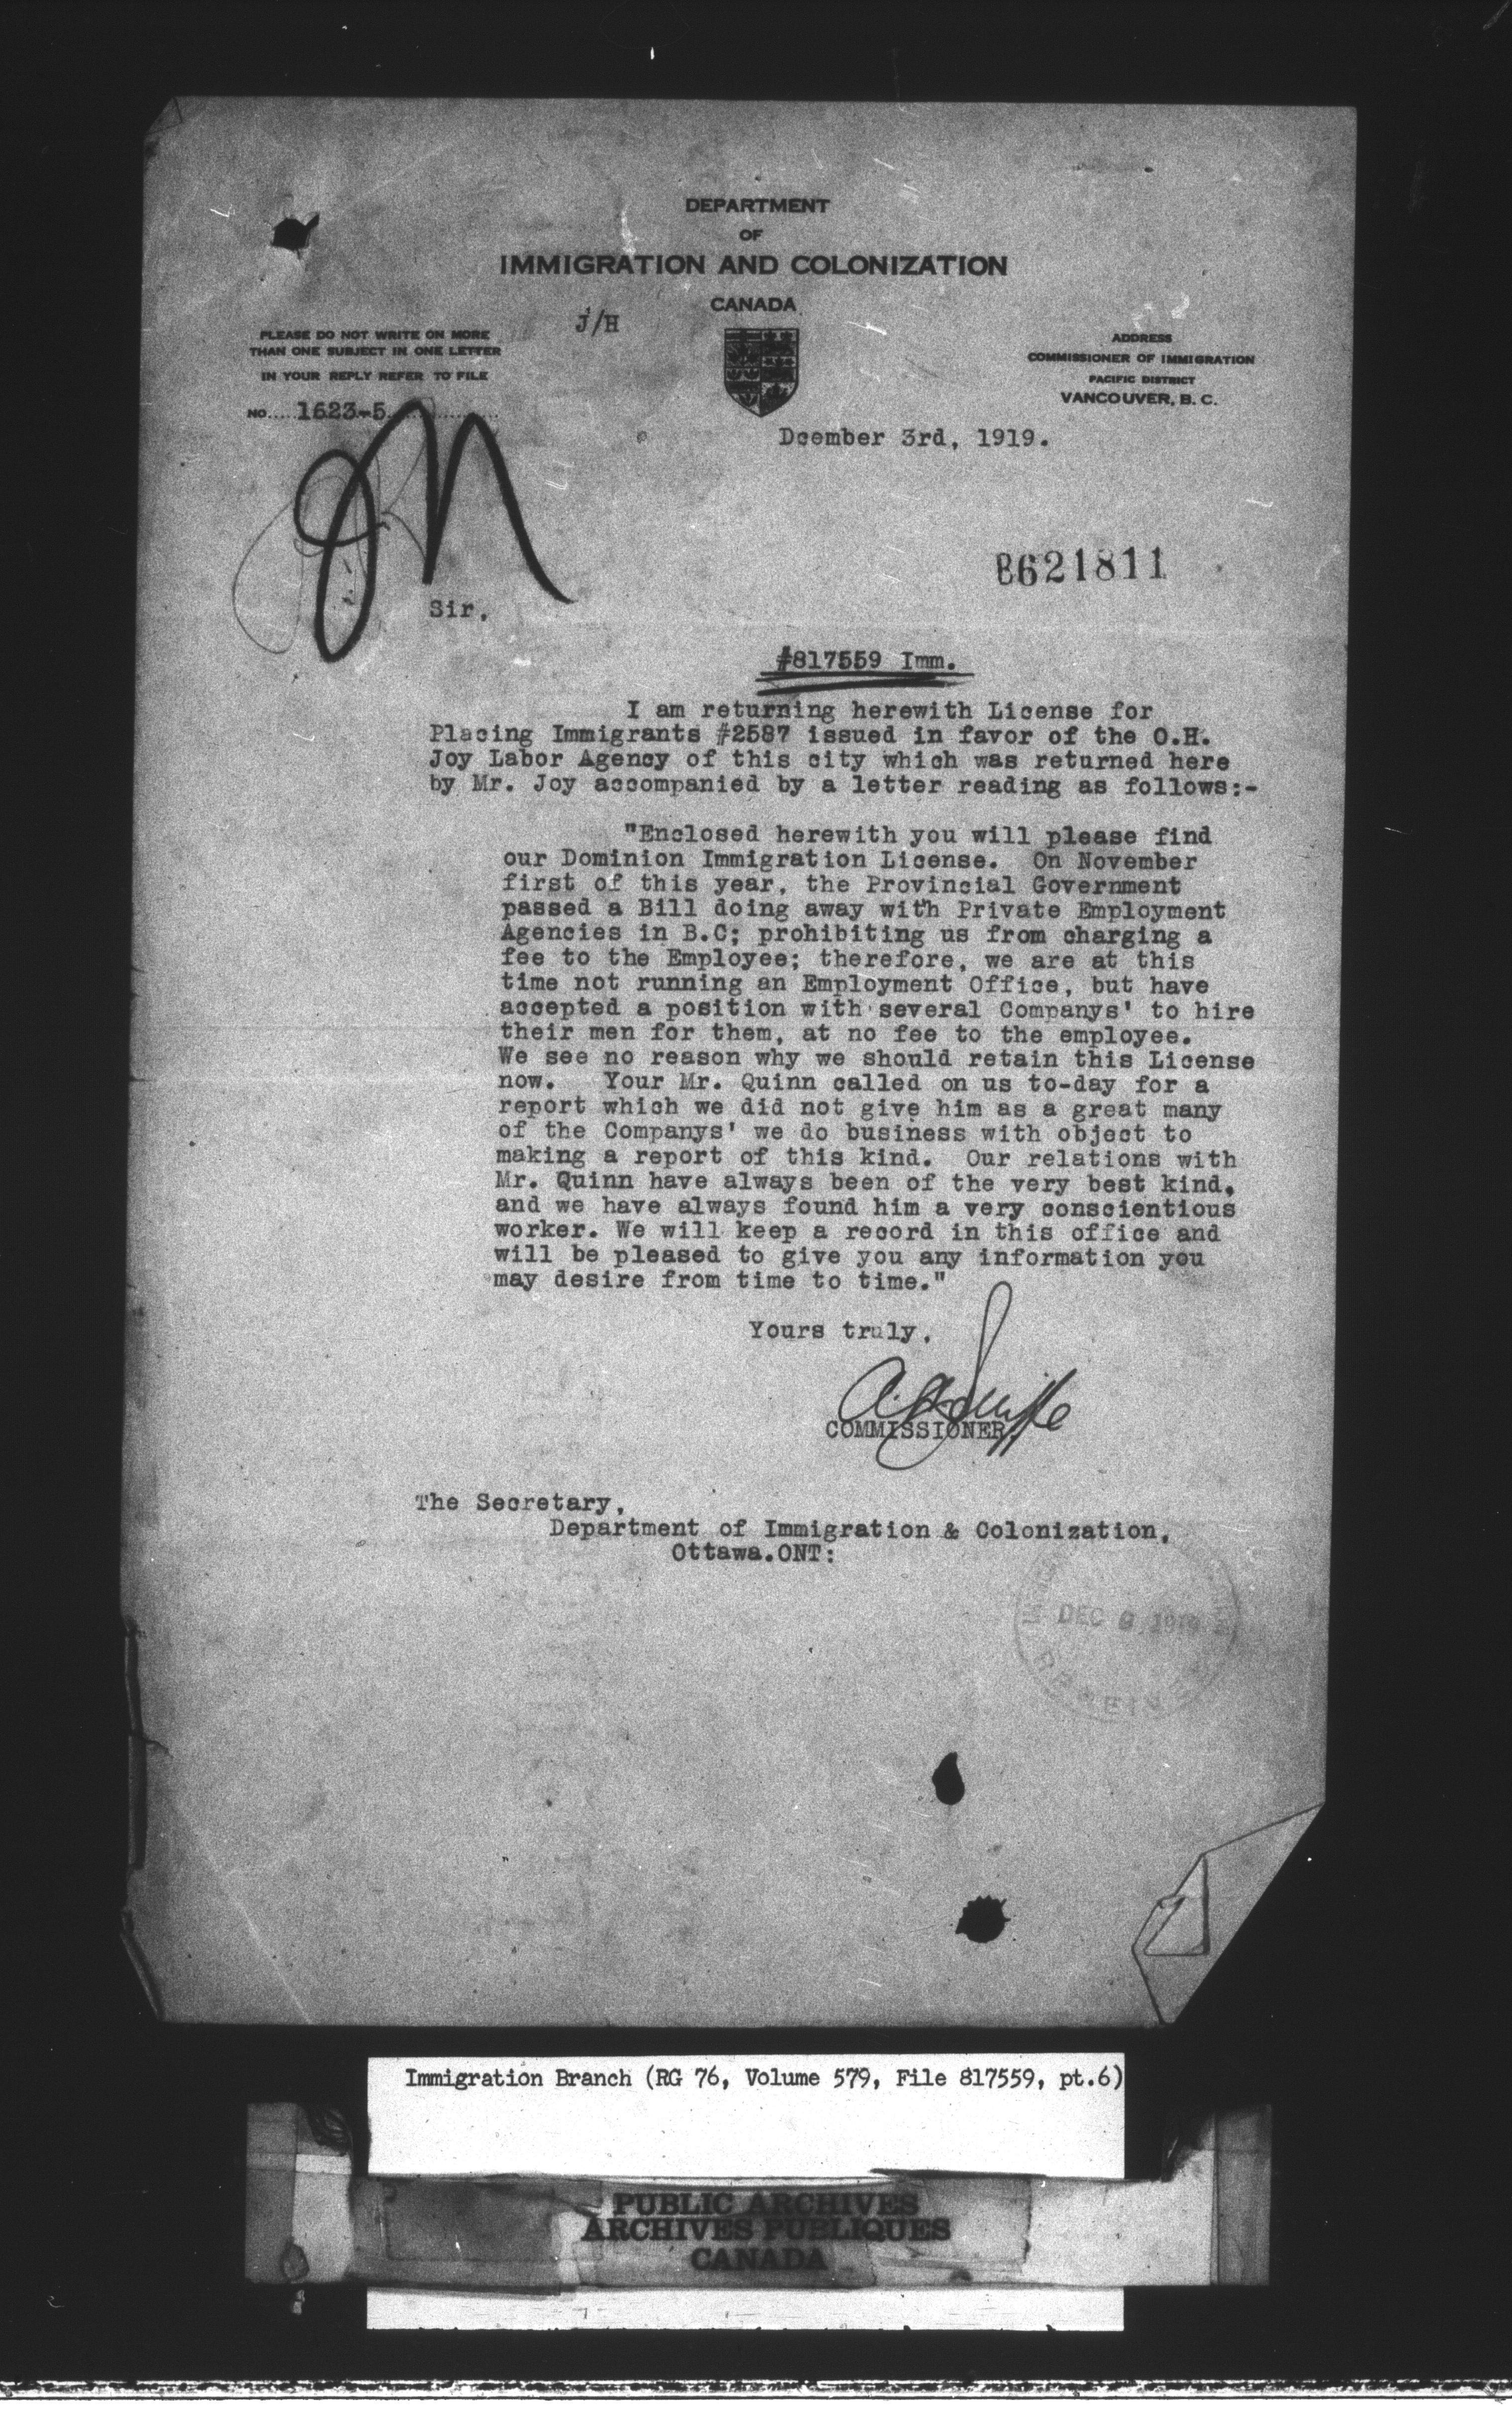 DEPARTMENT
OF
IMMIGRATION AND COLONIZATION
CANADA
J/H
PLEASE DO NOT WRITE ON MORE
THAN ONE SUBJECT IN ONE LETTER
IN YOUR REPLY REFER TO FILE
NO.....1623-5..............
ADDRESS
COMMISSIONER OF IMMIGRATION
PACIFIC DISTRICT
VANCOUVER, B. C.
Dcember 3rd, 1919.
8621811
Sir,
#817559 Imm.
I am returning herewith License for
Placing Immigrants #2587 issued in favor of the O.H.
Joy Labor Agency of this city which was returned here
by Mr. Joy accompanied by a letter reading as follows:-
"Enclosed herewith you will please find
our Dominion Immigration License. On November
first of this year, the Provincial Government
passed a Bill doing away with Private Employment
Agencies in B.C; prohibiting us from charging a
fee to the Employee; therefore, we are at this
time not running an Employment Office, but have
accepted a position with several Companys' to hire
their men for them, at no fee to the employee.
We see no reason why we should retain this License
now. Your Mr. Quinn called on us to-day for a
report which we did not give him as a great many
of the Companys' we do business with object to
making a report of this kind. Our relations with
Mr. Quinn have always been of the very best kind,
and we have always found him a very conscientious
worker. We will keep a record in this office and
will be pleased to give you any information you
may desire from time to time."
Yours truly,
COMMISSIONER
The Secretary,
Department of Immigration & Colonization,
Ottawa.ONT:
DEC 1919
Immigration Branch (RG 76, Volume 579, File 817559, pt.6)
PUBLIC ARCHIVES
ARCHIVES PUBLIQUES
CANADA